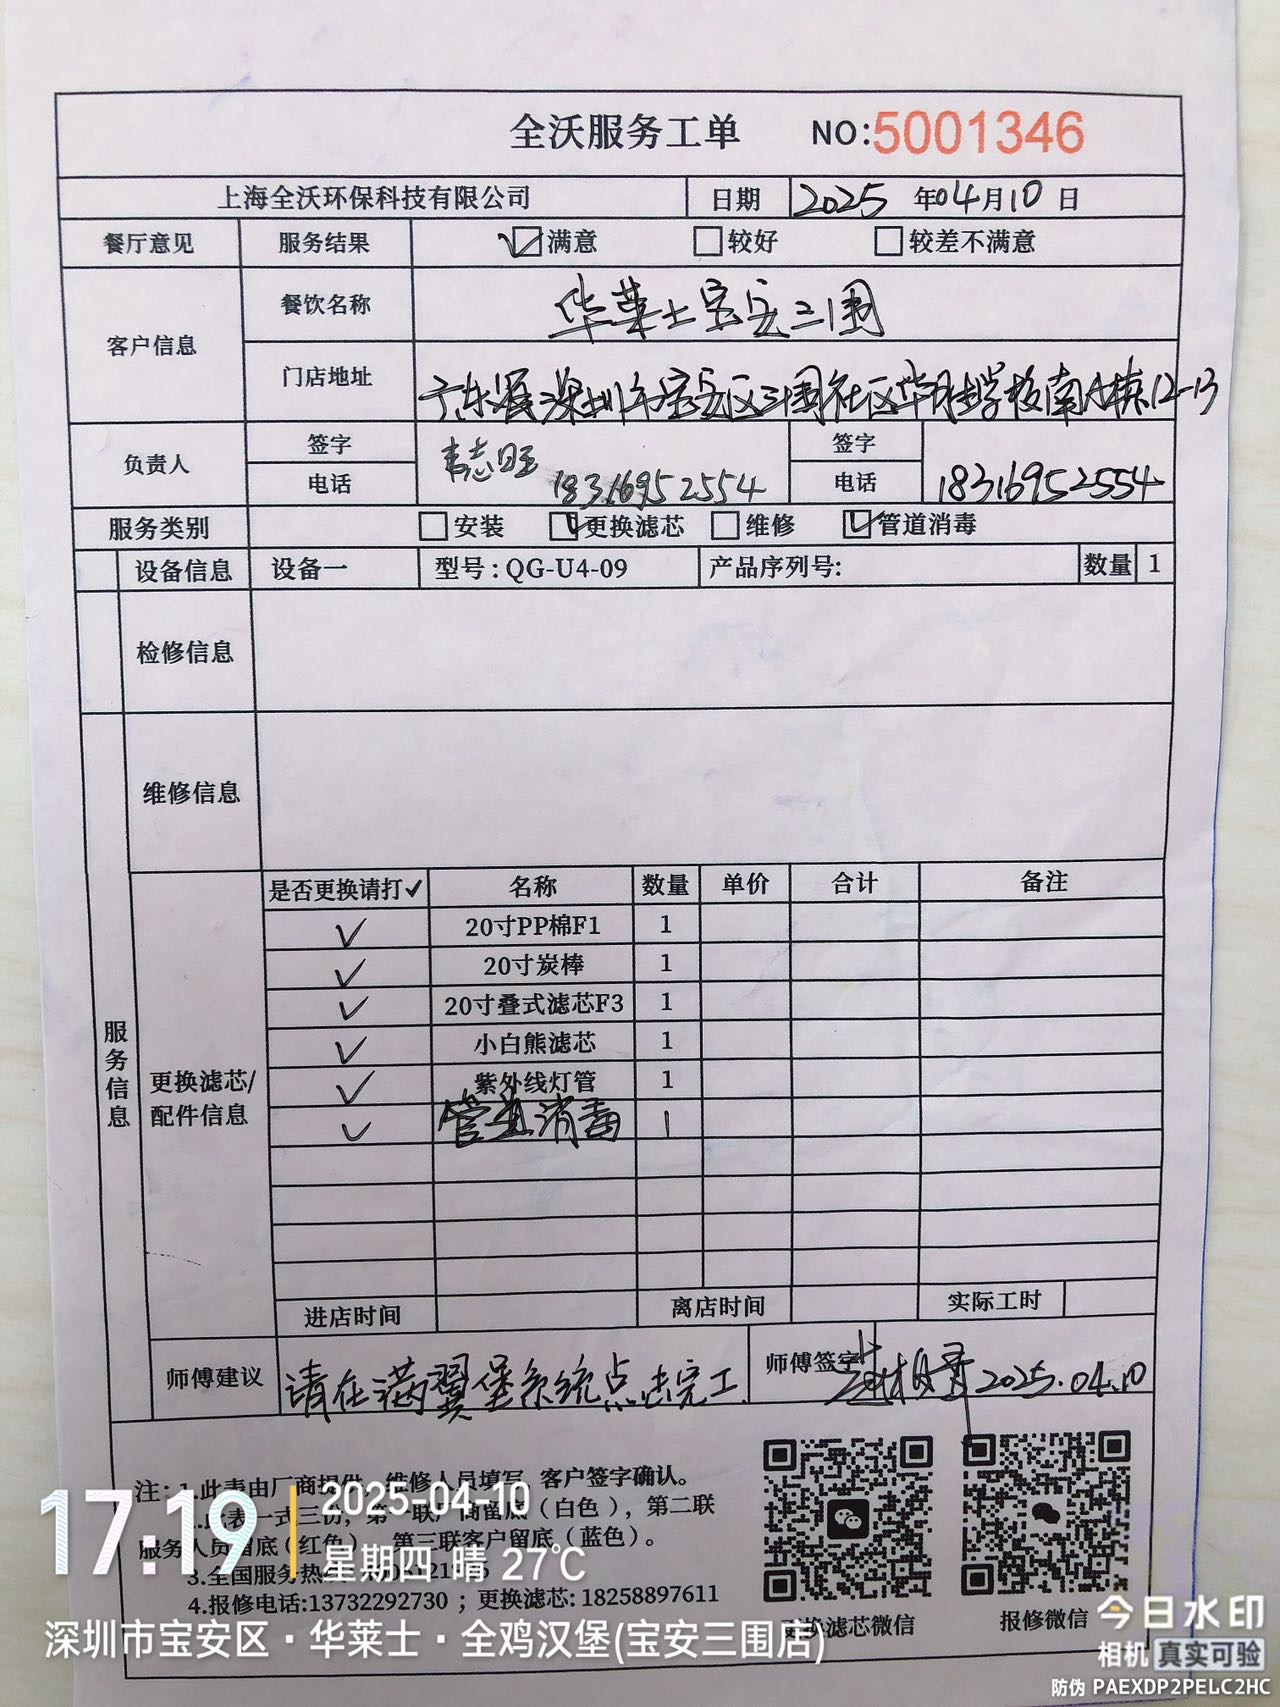 全沃服务工单 NO:5001346
上海全沃环保科技有限公司 日期 2025 年04月10日
餐厅意见 服务结果 满意 较好 较差不满意
客户信息 餐饮名称 华莱士宝安三围
门店地址 广东深圳市宝安区三围社区华胜学校南A栋12-13
负责人 签字 韦志旺 签字
电话 18316952554 电话 18316952554
服务类别 安装 更换滤芯 维修 管道消毒
设备信息 设备一 型号:QG-U4-09 产品序列号: 数量 1
检修信息
维修信息
服务信息
更换滤芯/
配件信息
是否更换请打✓ 名称 数量 单价 合计 备注
✓ 20寸PP棉F1 1
✓ 20寸炭棒 1
✓ 20寸叠式滤芯F3 1
✓ 小白熊滤芯 1
✓ 紫外线灯管 1
✓ 管道消毒 1
进店时间 离店时间 实际工时
师傅建议 请在满翼堡系统点击完工 师傅签字 2025.04.10
注:1.此表由厂商提供,维修人员填写,客户签字确认。
此表一式三份,第一联厂商留底(白色),第二联
服务人员留底(红色) 第三联客户留底(蓝色)。
3.全国服务热
4.报修电话:13732292730;更换滤芯:18258897611
更换滤芯微信 报修微信
17:19 2025-04-10
星期四 晴 27℃
深圳市宝安区·华莱士·全鸡汉堡(宝安三围店)
今日水印
相机 真实可验
防伪 PAEXDP2PELC2HC